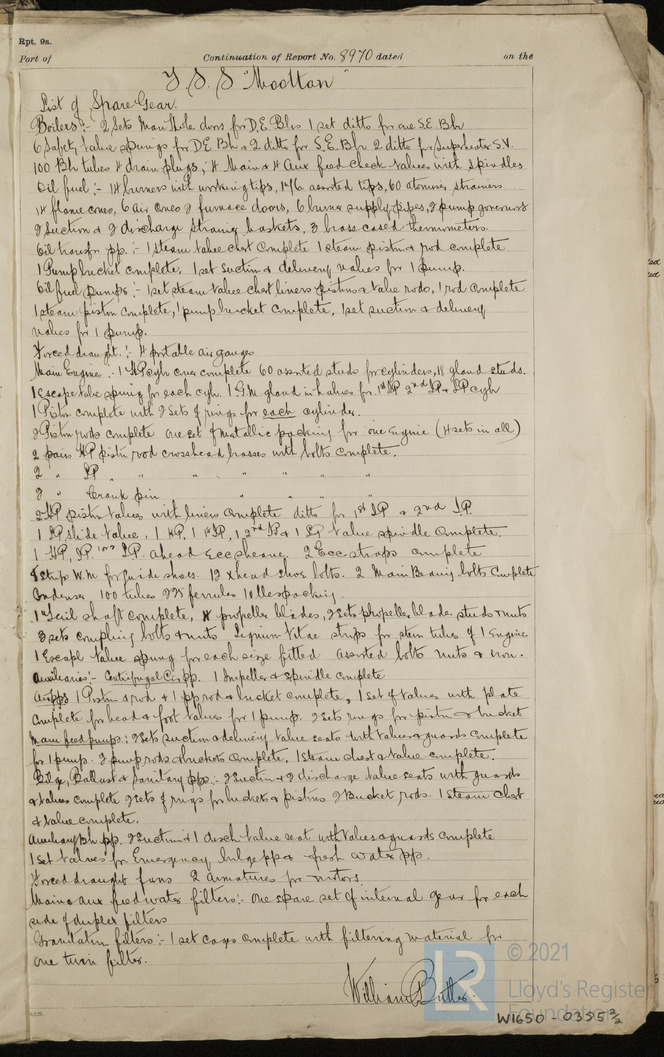 Rpt. 9a.
Port of Continuation of Report No. 8970 dated on the
T.S.S "Mooltan"
List of Spare Gear.
Boilers:- 2 Sets Man Hole doors for D.E. Blrs 1 set ditto for one S.E. Blr
6 Safety Value springs for D.E Blr & 2 ditto for S.E. Blr 2 ditto for Superheater S.V.
100 Blr tubes 4 drain plugs, 4 Main & 4 Aux feed check values with spindles
Oil fuel:- 14 burners with working tips, 176 assorted tips, 60 atomiser strainers
14 flame cones, 6 air cones 2 furnace doors, 6 burner supply pipes, 2 pump governors
2 Suction & 2 discharge straining baskets, 3 brass cased thermometers.
Oil transfer pp:- 1 steam value chest complete 1 steam piston & rod complete
1 Pump bucket complete, 1 set suction & delivery values for 1 pump.
Oil fuel pumps:- 1 set steam value chest liners pistons & value rods, 1 rod complete
1 steam piston complete, 1 pump bucket complete, 1 set suction & delivery
values for 1 pump.
Forced draught:- 4 portable air gauges
Main Engine:- 1 HP cylr cover complete 60 assorted studs for cylinders, 18 gland studs.
1 escape value spring for each cylr. 1 G.M gland in halves for 1st IP 2nd IP & LP cylr
1 Piston complete with 2 sets of rings for each cylinder.
2 Piston rods complete one set of metallic packing for one Engine (4 sets in all)
2 pairs HP piston rod crosshead brasses with bolts complete.
2 " LP " " " " " "
2 " Crank pin " " " "
2 HP piston values with liners complete ditto for 1st IP & 2nd IP.
1 LP slide value, 1 HP, 1 1st IP, 1 2nd IP & 1 LP value spindle complete.
1 HP, IP, LP. ahead Ecc sheave. 2 Ecc straps complete
strips W.M for guide shoes. 12 xhead shoe bolts. 2 Main Bearing bolts complete
Condenser 100 tubes ferrules packing.
1 Tail shaft complete, 4 propeller blades, 2 sets propeller blade studs & nuts
3 sets coupling bolts & nuts Lignum Vitae strips for stern tubes of 1 Engine
1 Escape Value spring for each size fitted assorted bolts nuts & iron.
Auxiliaries:- Centrifugal Circ pp. 1 Impeller & spindle complete
Air pps 1 Piston & rod & 1 pp rod & bucket complete, 1 set of values with plate
complete for head & foot values for 1 pump. 2 Sets rings for piston & bucket
Main feed pumps: 2 Sets suction & delivery value seats with values & guards complete
for 1 pump. 2 pump rods & buckets complete. 1 steam chest & value complete.
Bilge, Ballast & Sanitary pps:- 2 Suction & 2 discharge value seats with guards
& values complete 2 sets of rings for buckets & pistons 2 Bucket rods. 1 Steam Chest
& value complete.
Auxiliary Blr pp. 2 Suction & 1 disch value seat with values & guards complete
1 set values for Emergency bilge pp & fresh water pp.
Forced draught fans 2 armatures for motors
Main & aux feed water filters:- One spare set of internal gear for each
side of duplex filters
Gravitation filters:- 1 set cages complete with filtering material for
one twin filter.
William Butler
© 2021
LR
Lloyd's Register
Foundation
W1650 - 0355 2/2